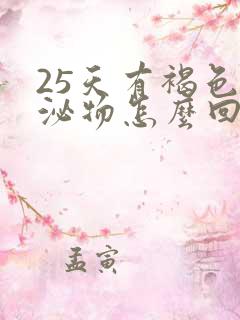 25天有褐色
泌物怎麼回
孟寅